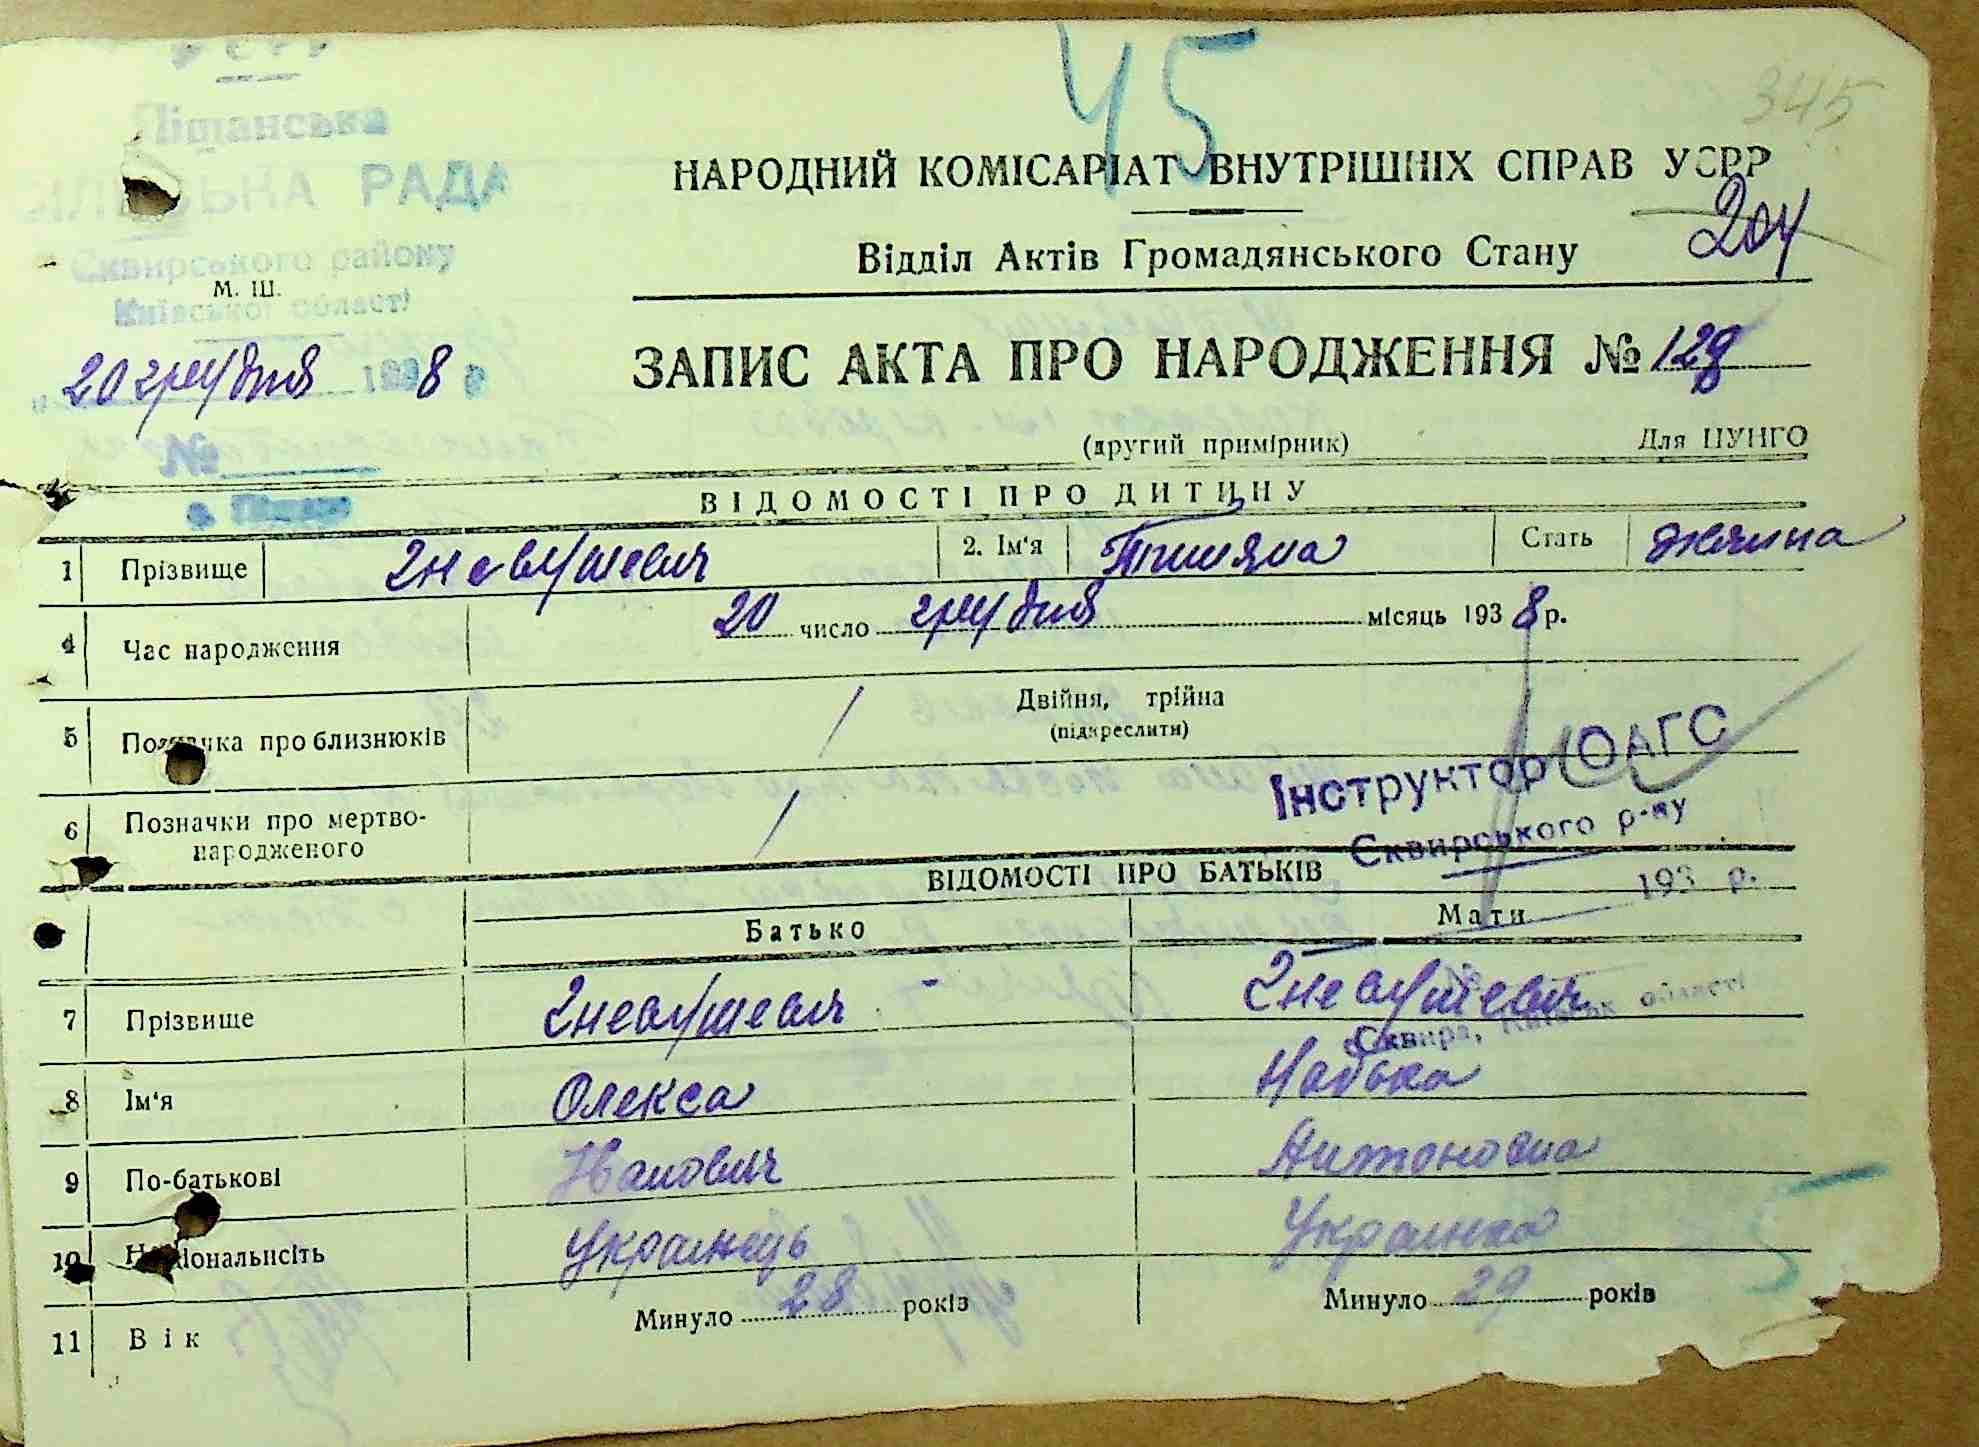 45
345
Піщанська
СІЛЬСЬКА РАДА
Сквирського району
Київської області
М. Ш.
20 грудня 1938 р
№
с. Піщане
НАРОДНИЙ КОМІСАРІАТ ВНУТРІШНІХ СПРАВ УСРР
204
Відділ Актів Громадянського Стану
ЗАПИС АКТА ПРО НАРОДЖЕННЯ № 128
(другий примірник) Для ЦУНГО
ВІДОМОСТІ ПРО ДИТИНУ
1 Прізвище Гневушевич 2. Ім'я Стать
4 Час народження 20 число грудня місяць 1938 р.
5 Позначка про близнюків Двійня, трійна
(підкреслити)
6 Позначки про мертво-
народженого
Інструктор ОАГС
Сквирського р-ну
193 р.
Сквира, Київськ області
ВІДОМОСТІ ПРО БАТЬКІВ
Батько Мати
7 Прізвище Гневушевич Гневушевич
8 Ім'я Олекса Надька
9 По-батькові Іванович Антоновна
10 Національність Українець Українка
11 Вік Минуло 28 років Минуло 29 років